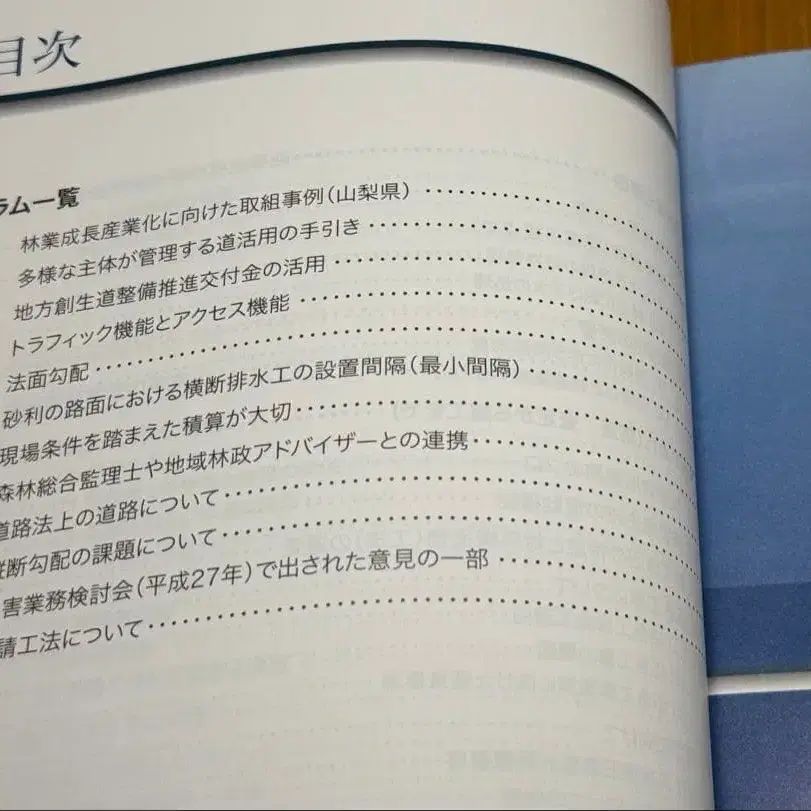 目次
ラム一覧
林業成長産業化に向けた取組事例(山梨県)
多様な主体が管理する道活用の手引き
地方創生道整備推進交付金の活用
トラフィック機能とアクセス機能
法面勾配
砂利の路面における横断排水工の設置間隔(最小間隔)
現場条件を踏まえた積算が大切
森林総合監理士や地域林政アドバイザーとの連携
道路法上の道路について
縦断勾配の課題について
害業務検討会(平成27年)で出された意見の一部
請工法について